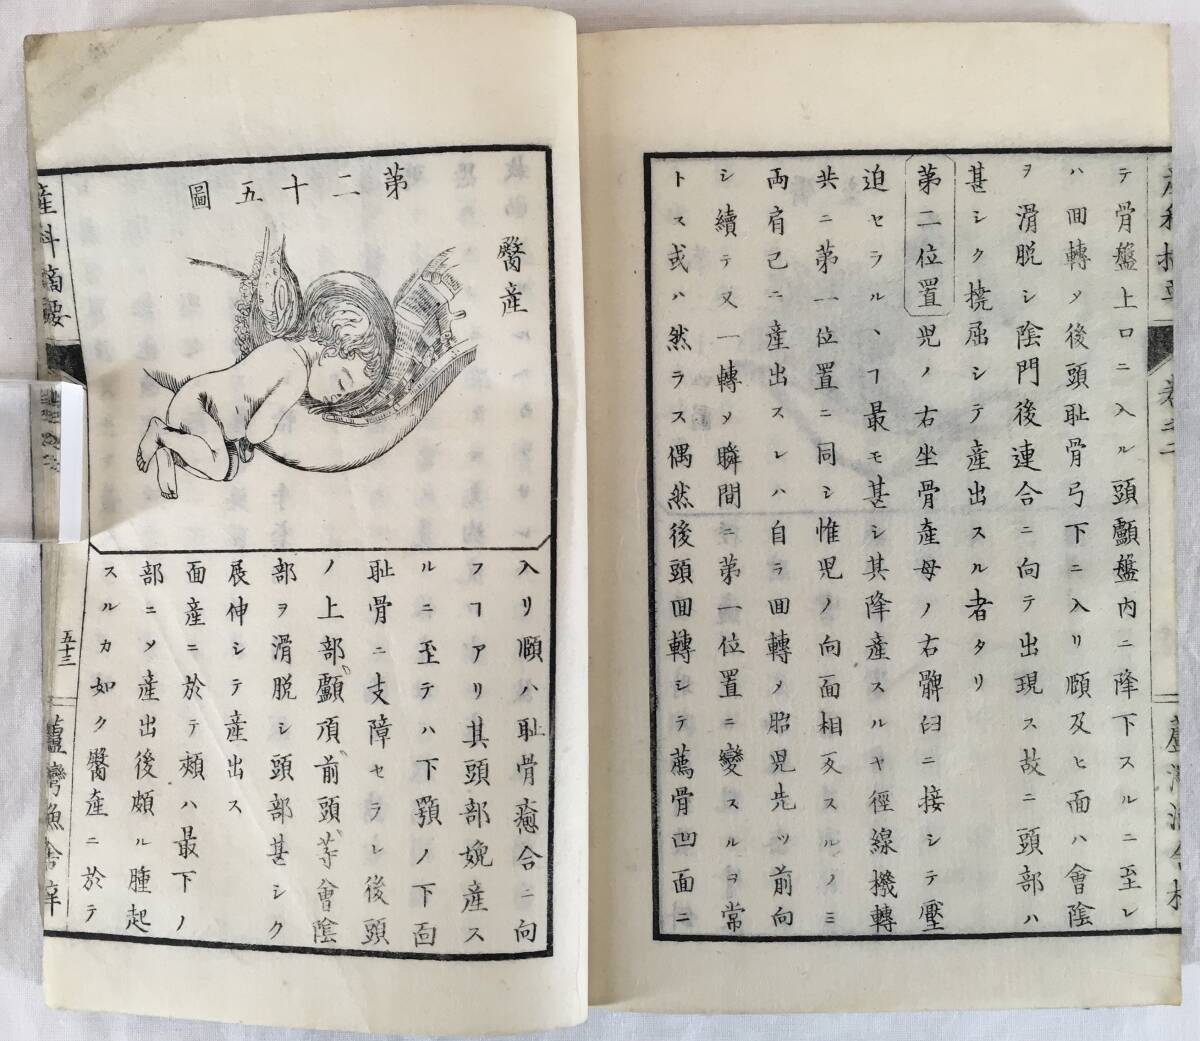 テ骨盤上口ニ入ル頭顱盤内ニ降下スルニ至レ
ハ回轉メ後頭耻骨弓下ニ入リ頤及ヒ面ハ會陰
ヲ滑脱シ陰門後連合ニ向テ出現ス故ニ頭部ハ
甚シク撓屈シテ産出スル者タリ
第二位置 兒ノ右坐骨産母ノ右髀臼ニ接シテ壓
迫セラル丶ヿ最モ甚シ其降産スルヤ徑線機轉
共ニ第一位置ニ同シ惟兒ノ向面相反スルノミ
両肩已ニ産出スレハ自ラ回轉メ胎児先ツ前向
シ續テ又一轉メ瞬間ニ第一位置ニ變スルヲ常
トス或ハ然ラス偶然後頭回轉シテ薦骨凹面ニ
第二十五圖
臀産
入リ頤ハ耻骨癒合ニ向
フヿアリ其頭部娩産ス
ルニ至テハ下顎ノ下面
耻骨ニ支障セラレ後頭
ノ上部顱頂前頭等會陰
部ヲ滑脱シ頭部甚シク
展伸シテ産出ス
面産ニ於テ頬ハ最下ノ
部ニメ産出後頗ル腫起
スルカ如ク臀産ニ於テ
産科摘要
五十三